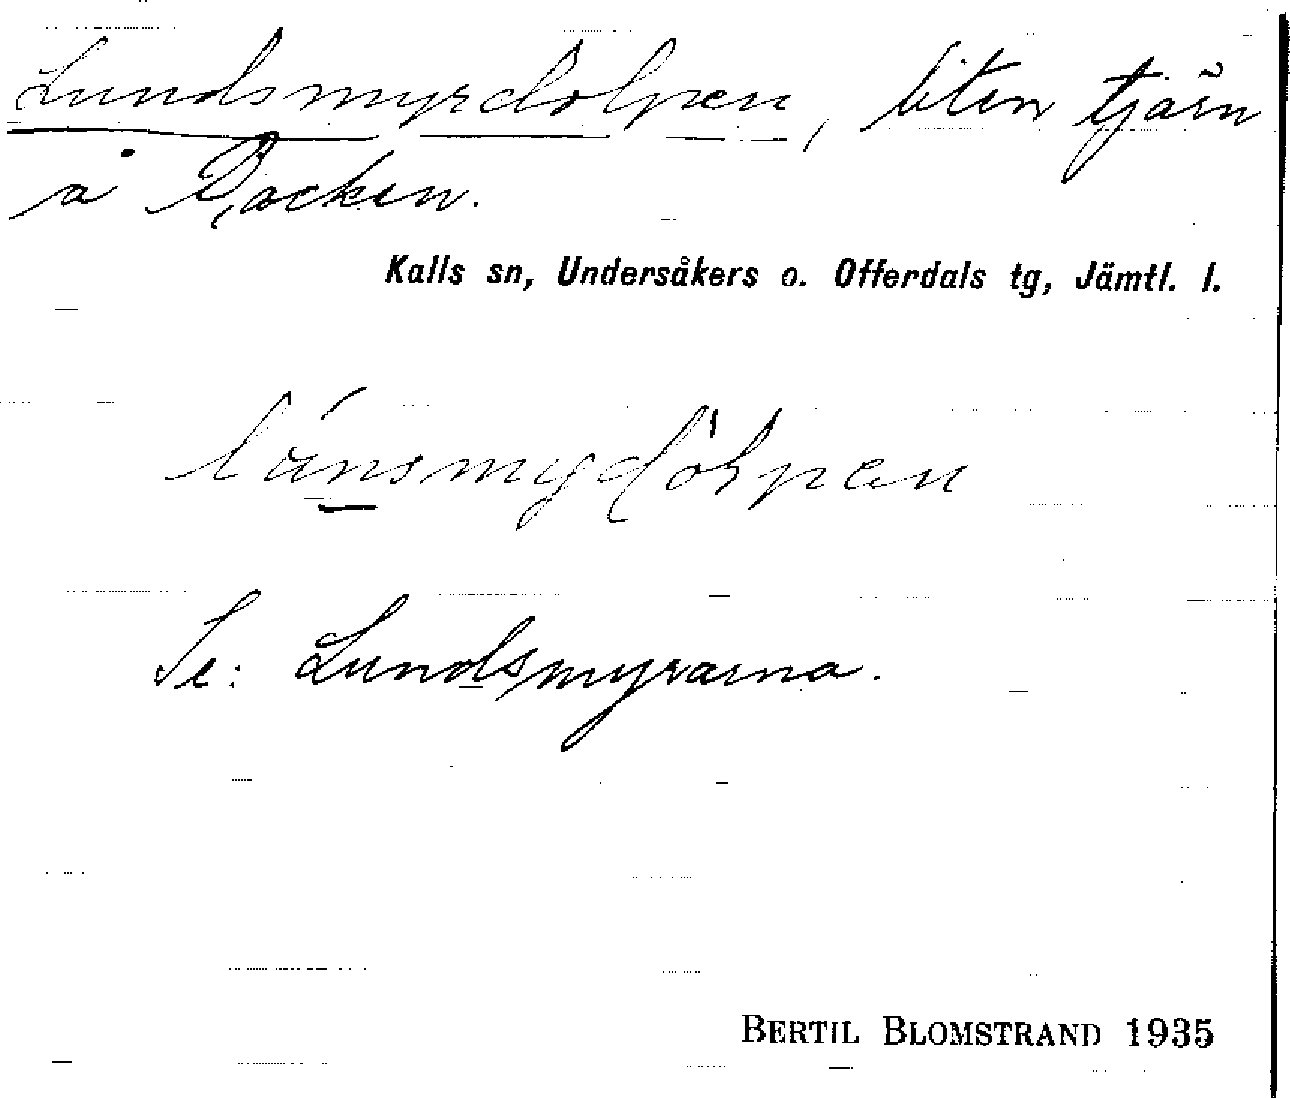 Lundsmyrdolpen, liten tjärn
å Backen.
Kalls sn, Undersåkers o. Offerdals tg, Jämtl. l.
Se: Lundsmyrarna.
BERTIL BLOMSTRAND 1935